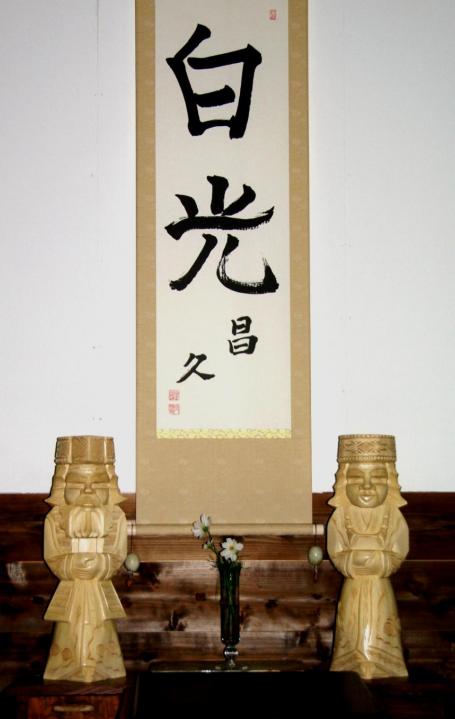 白
光
昌
久